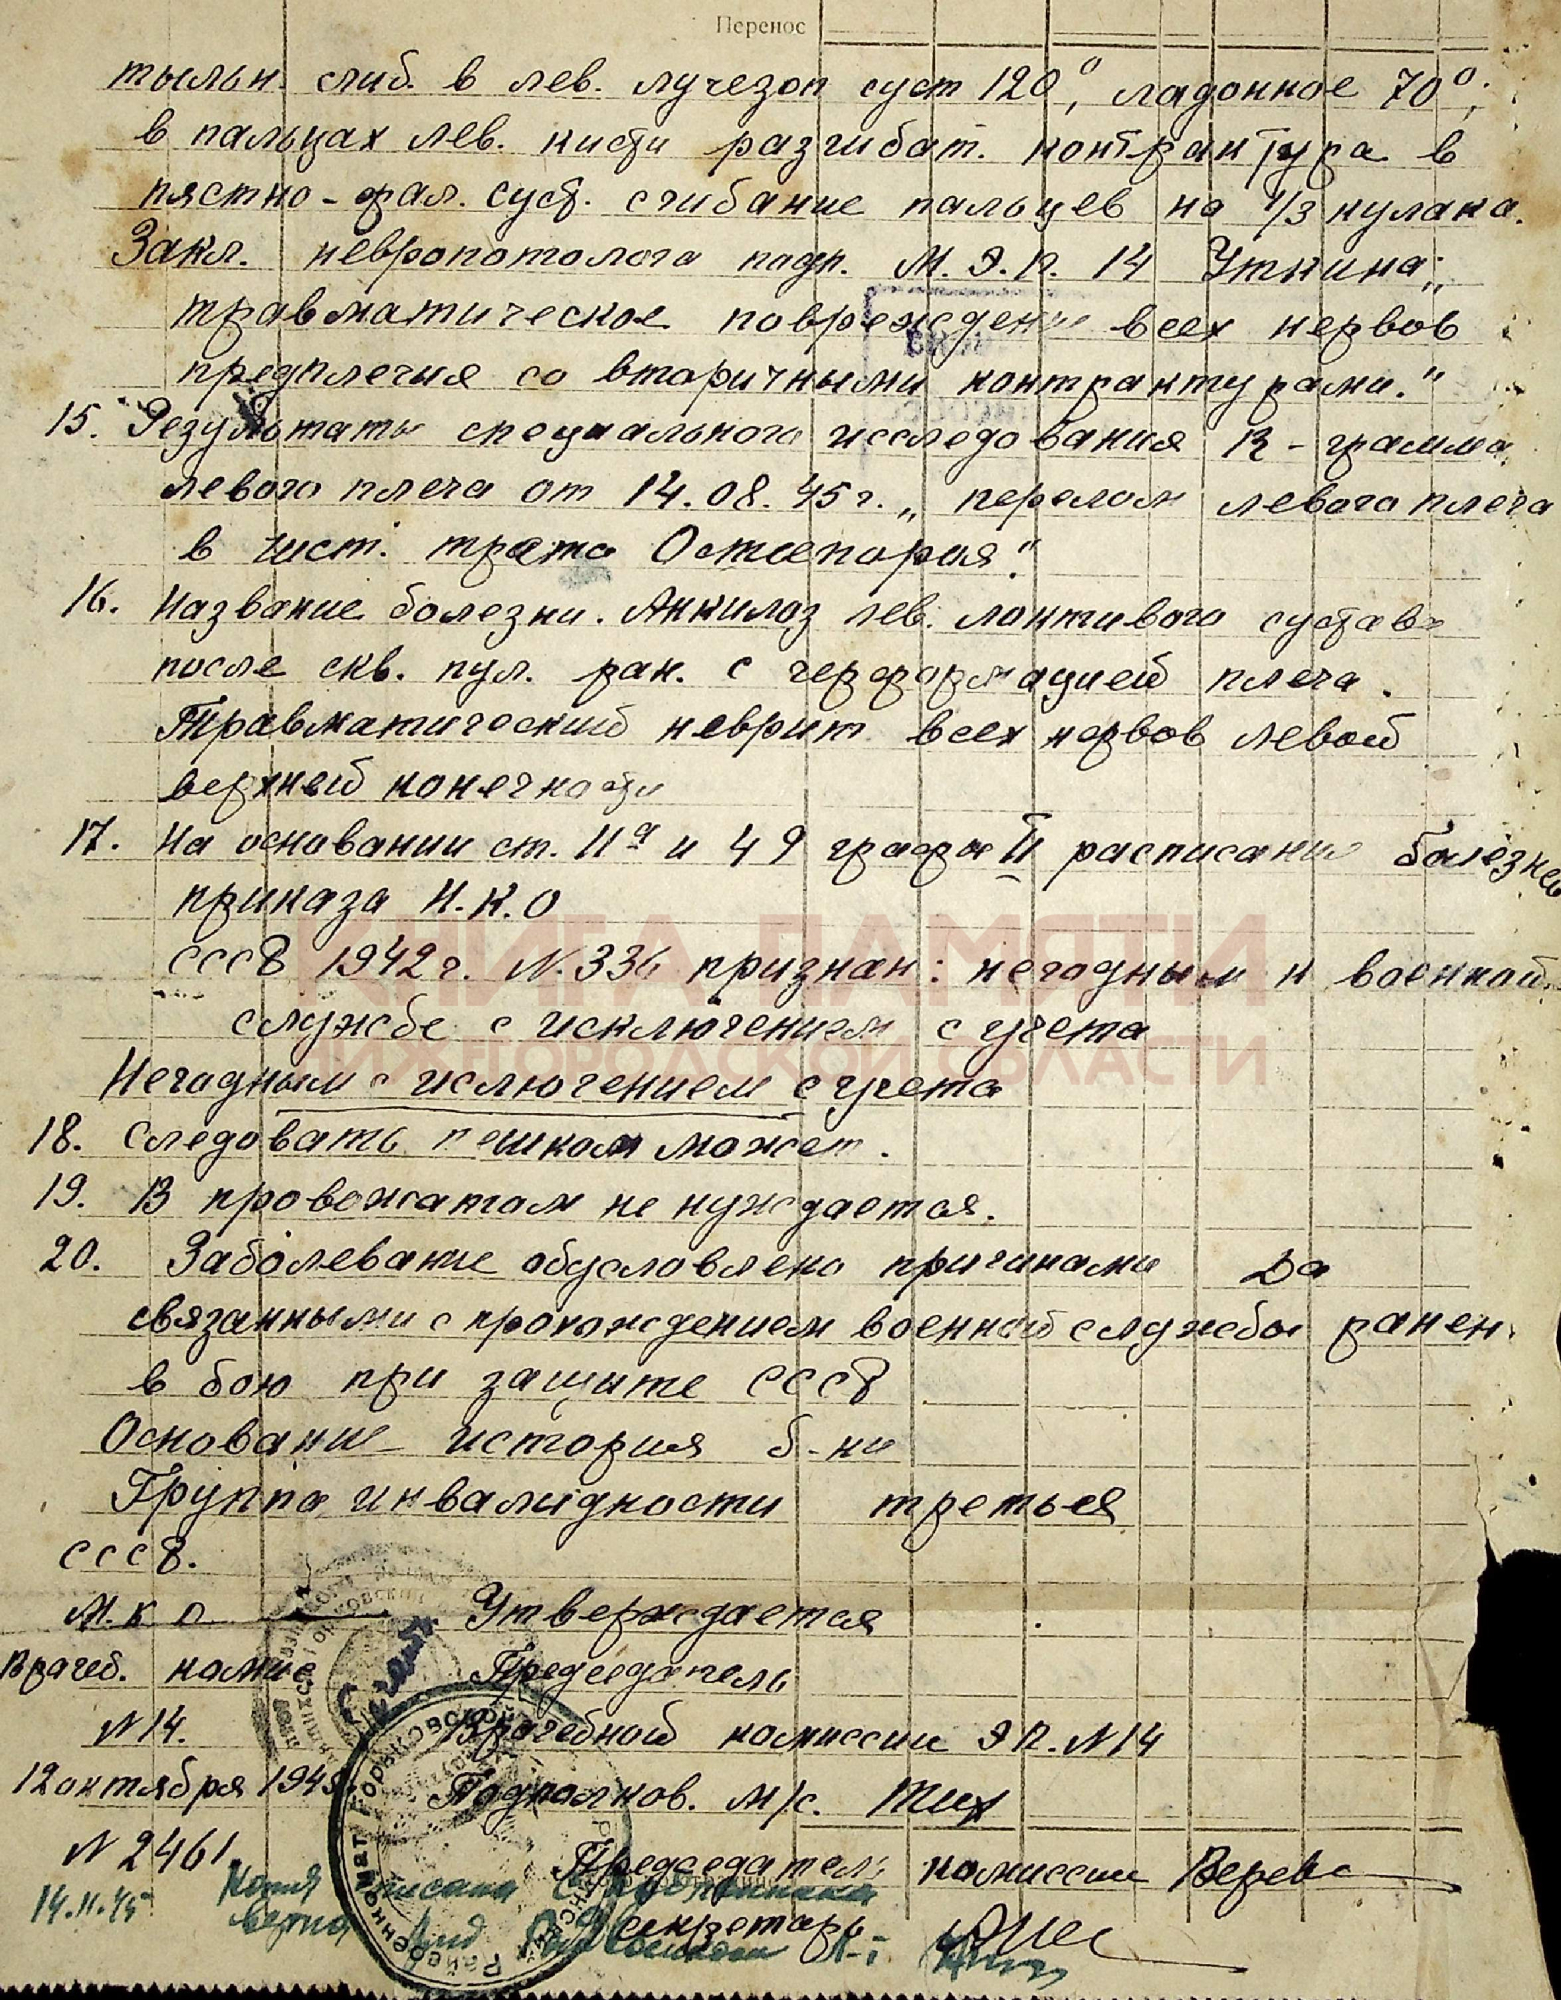 Перенос
тыльн. сгиб. в лев. лучезап суст 120°, ладонное 70°;
в пальцах лев. кисти разгибат. контрактура в
пястно-фал. суст. сгибание пальцев на 1/3 кулака.
Закл. невропотолога подп. М.Э.П. 14 Уткина:„
травматическое повреждение всех нервов
предплечия со вторичными контрактурами."
15. Результаты специального исследования R-грамма
левого плеча от 14.08.45г. „перелом левого плеча
в Остеопория."
16. Название болезни. Анкилоз лев. локтивого сустава
после скв. пул. ран. с плеча.
Травматический неврит всех нервов левой
верхней конечности
17. На основании ст. 11а и 49 графы II расписания болезней
приказа Н.К.О
СССР 1942г. N.336 признан: негодным к военной
службе с исключением с учета
Негодным с ислючением с учета
18. Следовать пешком может.
19. В провожатом не нуждается.
20. Заболевание обусловлено причинами Да
связанными с прохождением военной службы ранен
в бою при защите СССР
Основание история б-ни
Группа инвалидности третья
СССР.
М.К.О. Утверждается
Врачеб. комис Председатель
N14. Врачебной комиссии ЭП. N14
12 октября 1945 Подполков. м/с. Тих
N 2461 Председатель комиссии
14.11.45 Копия писана с подлинника
верна Секретарь
Горьковской
Райвоенкомат
КНИГА ПАМЯТИ
НИЖЕГОРОДСКОЙ ОБЛАСТИ